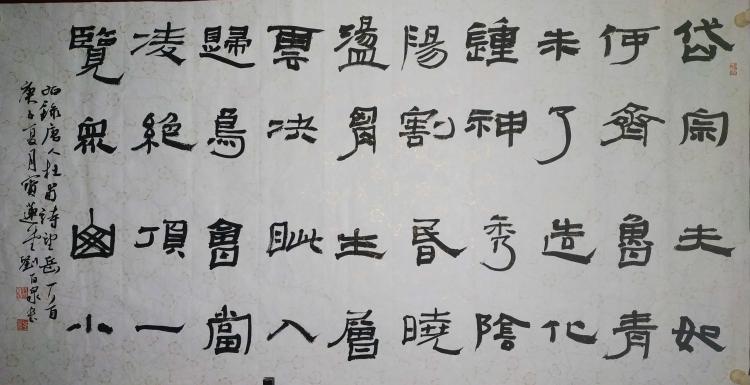 岱宗夫如
何齊魯青
未了造化
鍾神秀陰
陽割昏曉
盪胷生層
雲决眦入
歸鳥會當
凌絕頂一
覽眾山小
錄唐人杜甫詩望岳一首
庚子夏月寶蓮劉百泉書